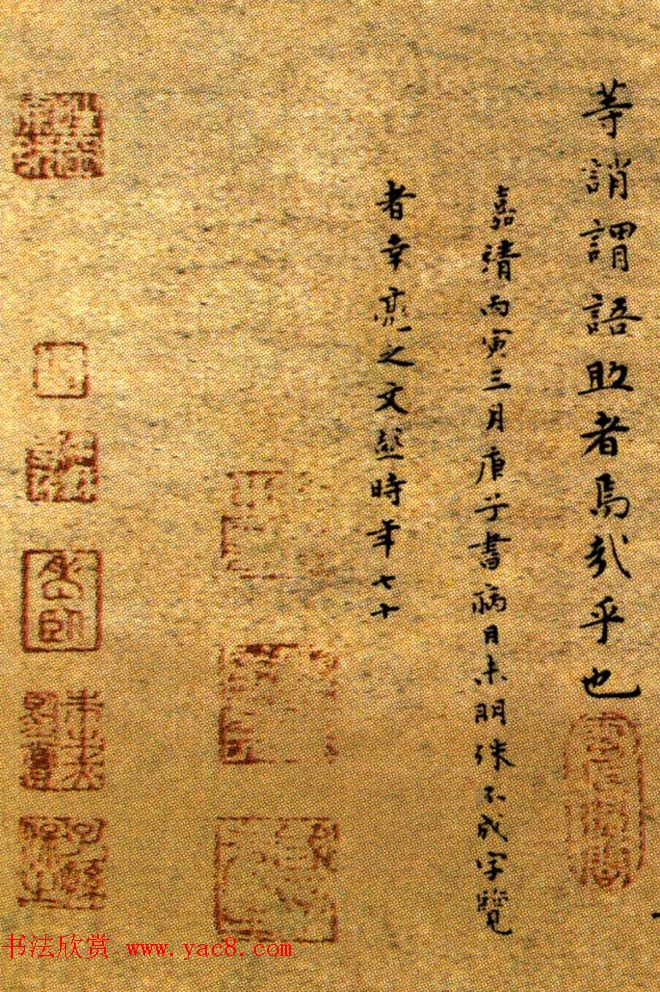 等誚謂語助者焉哉乎也
嘉靖丙寅三月庚子書病目未明殊不成字覽
者幸亮之文彭時年七十
书法欣赏 www.yac8.com